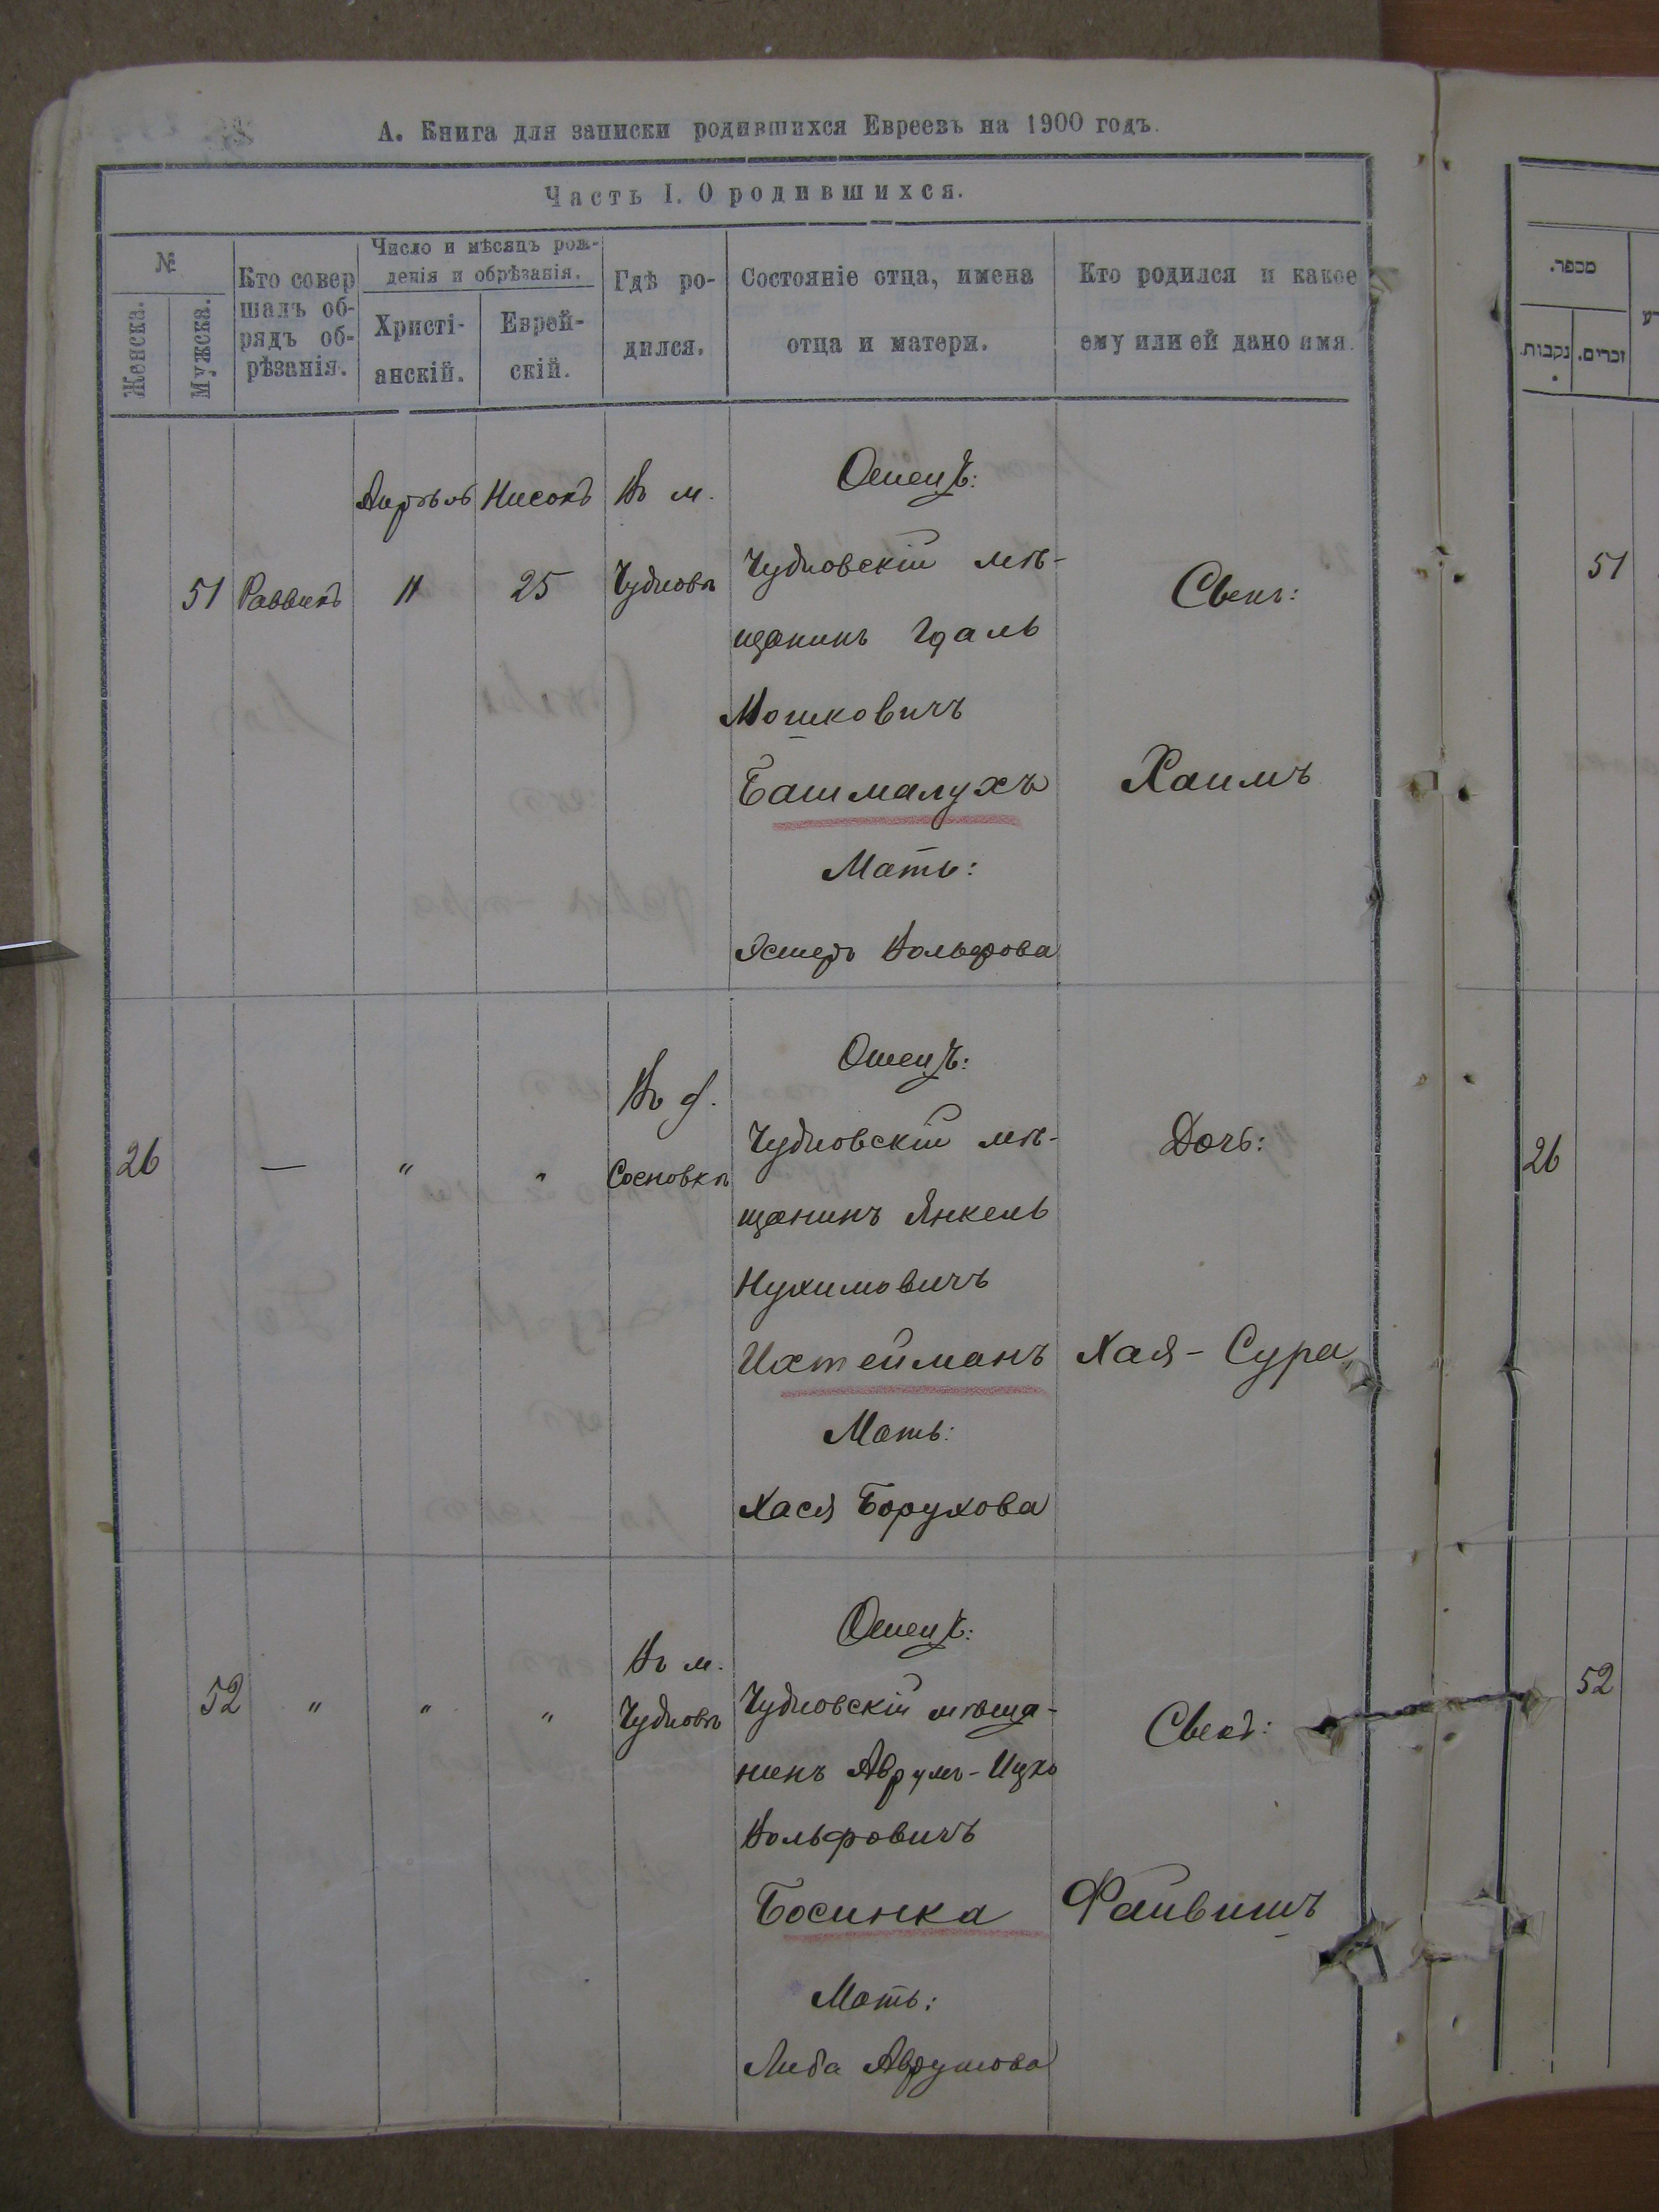 А. Книга для записки родившихся Евреевъ на 1900 годъ.
Часть I. О родившихся.
№
Женска.
Мужска.
Кто совер
шалъ об-
рядъ об-
рѣзанія.
Число и мѣсяцъ рож-
денія и обрѣзанія.
Христі-
анскій.
Еврей-
скій.
Гдѣ ро-
дился.
Состояніе отца, имена
отца и матери.
Кто родился и какое
ему или ей дано имя.
51
Раввинъ
Апрѣль
11
Нисонъ
25
Въ м.
Чудновѣ
Отецъ:
Чудновскій мѣ-
щанинъ Гдаль
Мошковичъ
Башмалухъ
Мать:
Эстеръ Вольфова
Сынъ:
Хаимъ
26
—
"
"
Въ д.
Сосновкѣ
Отецъ:
Чудновскій мѣ-
щанинъ Янкель
Нухимовичъ
Ихтейманъ
Мать:
Хася Борухова
Дочь:
Хая-Сура
52
"
"
"
Въ м.
Чудновѣ
Отецъ:
Чудновскій мѣща-
нинъ Аврумъ-Ицко
Вольфовичъ
Босинка
Мать:
Либа Аврумова
Сынъ:
Файвишъ
מספר.
נקבות.
זכרים.
51
26
52